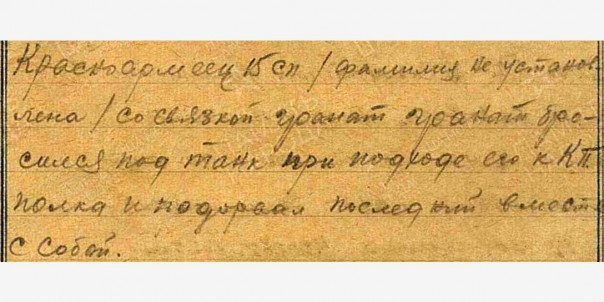 Красноармеец 15 сп / фамилия не установ
лена / со связкой гранат гранат бро-
сился под танк при подходе его к КП
полка и подорвал последний вместе
с собой.